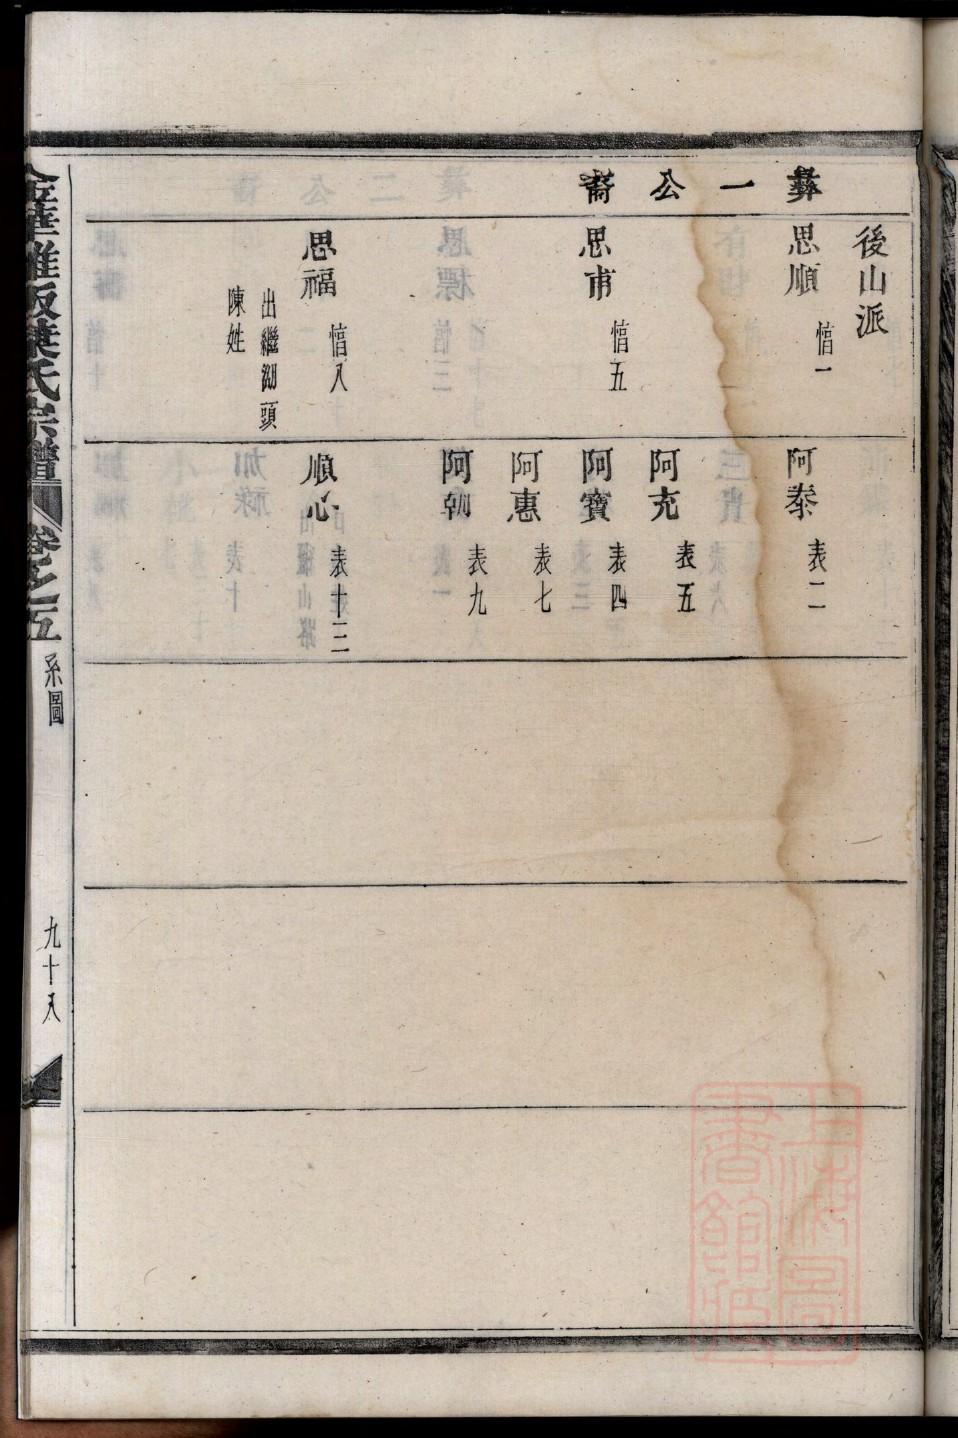 彝一公裔
後山派
思順
愔一
思甫
愔五
思福
愔八
出繼湖頭
陳姓
阿泰
表二
阿充
表五
阿寶
表四
阿惠
表七
阿朝
表九
順心
表十二
葉氏宗譜
卷之五
系圖
九十八
上海圖
書館藏